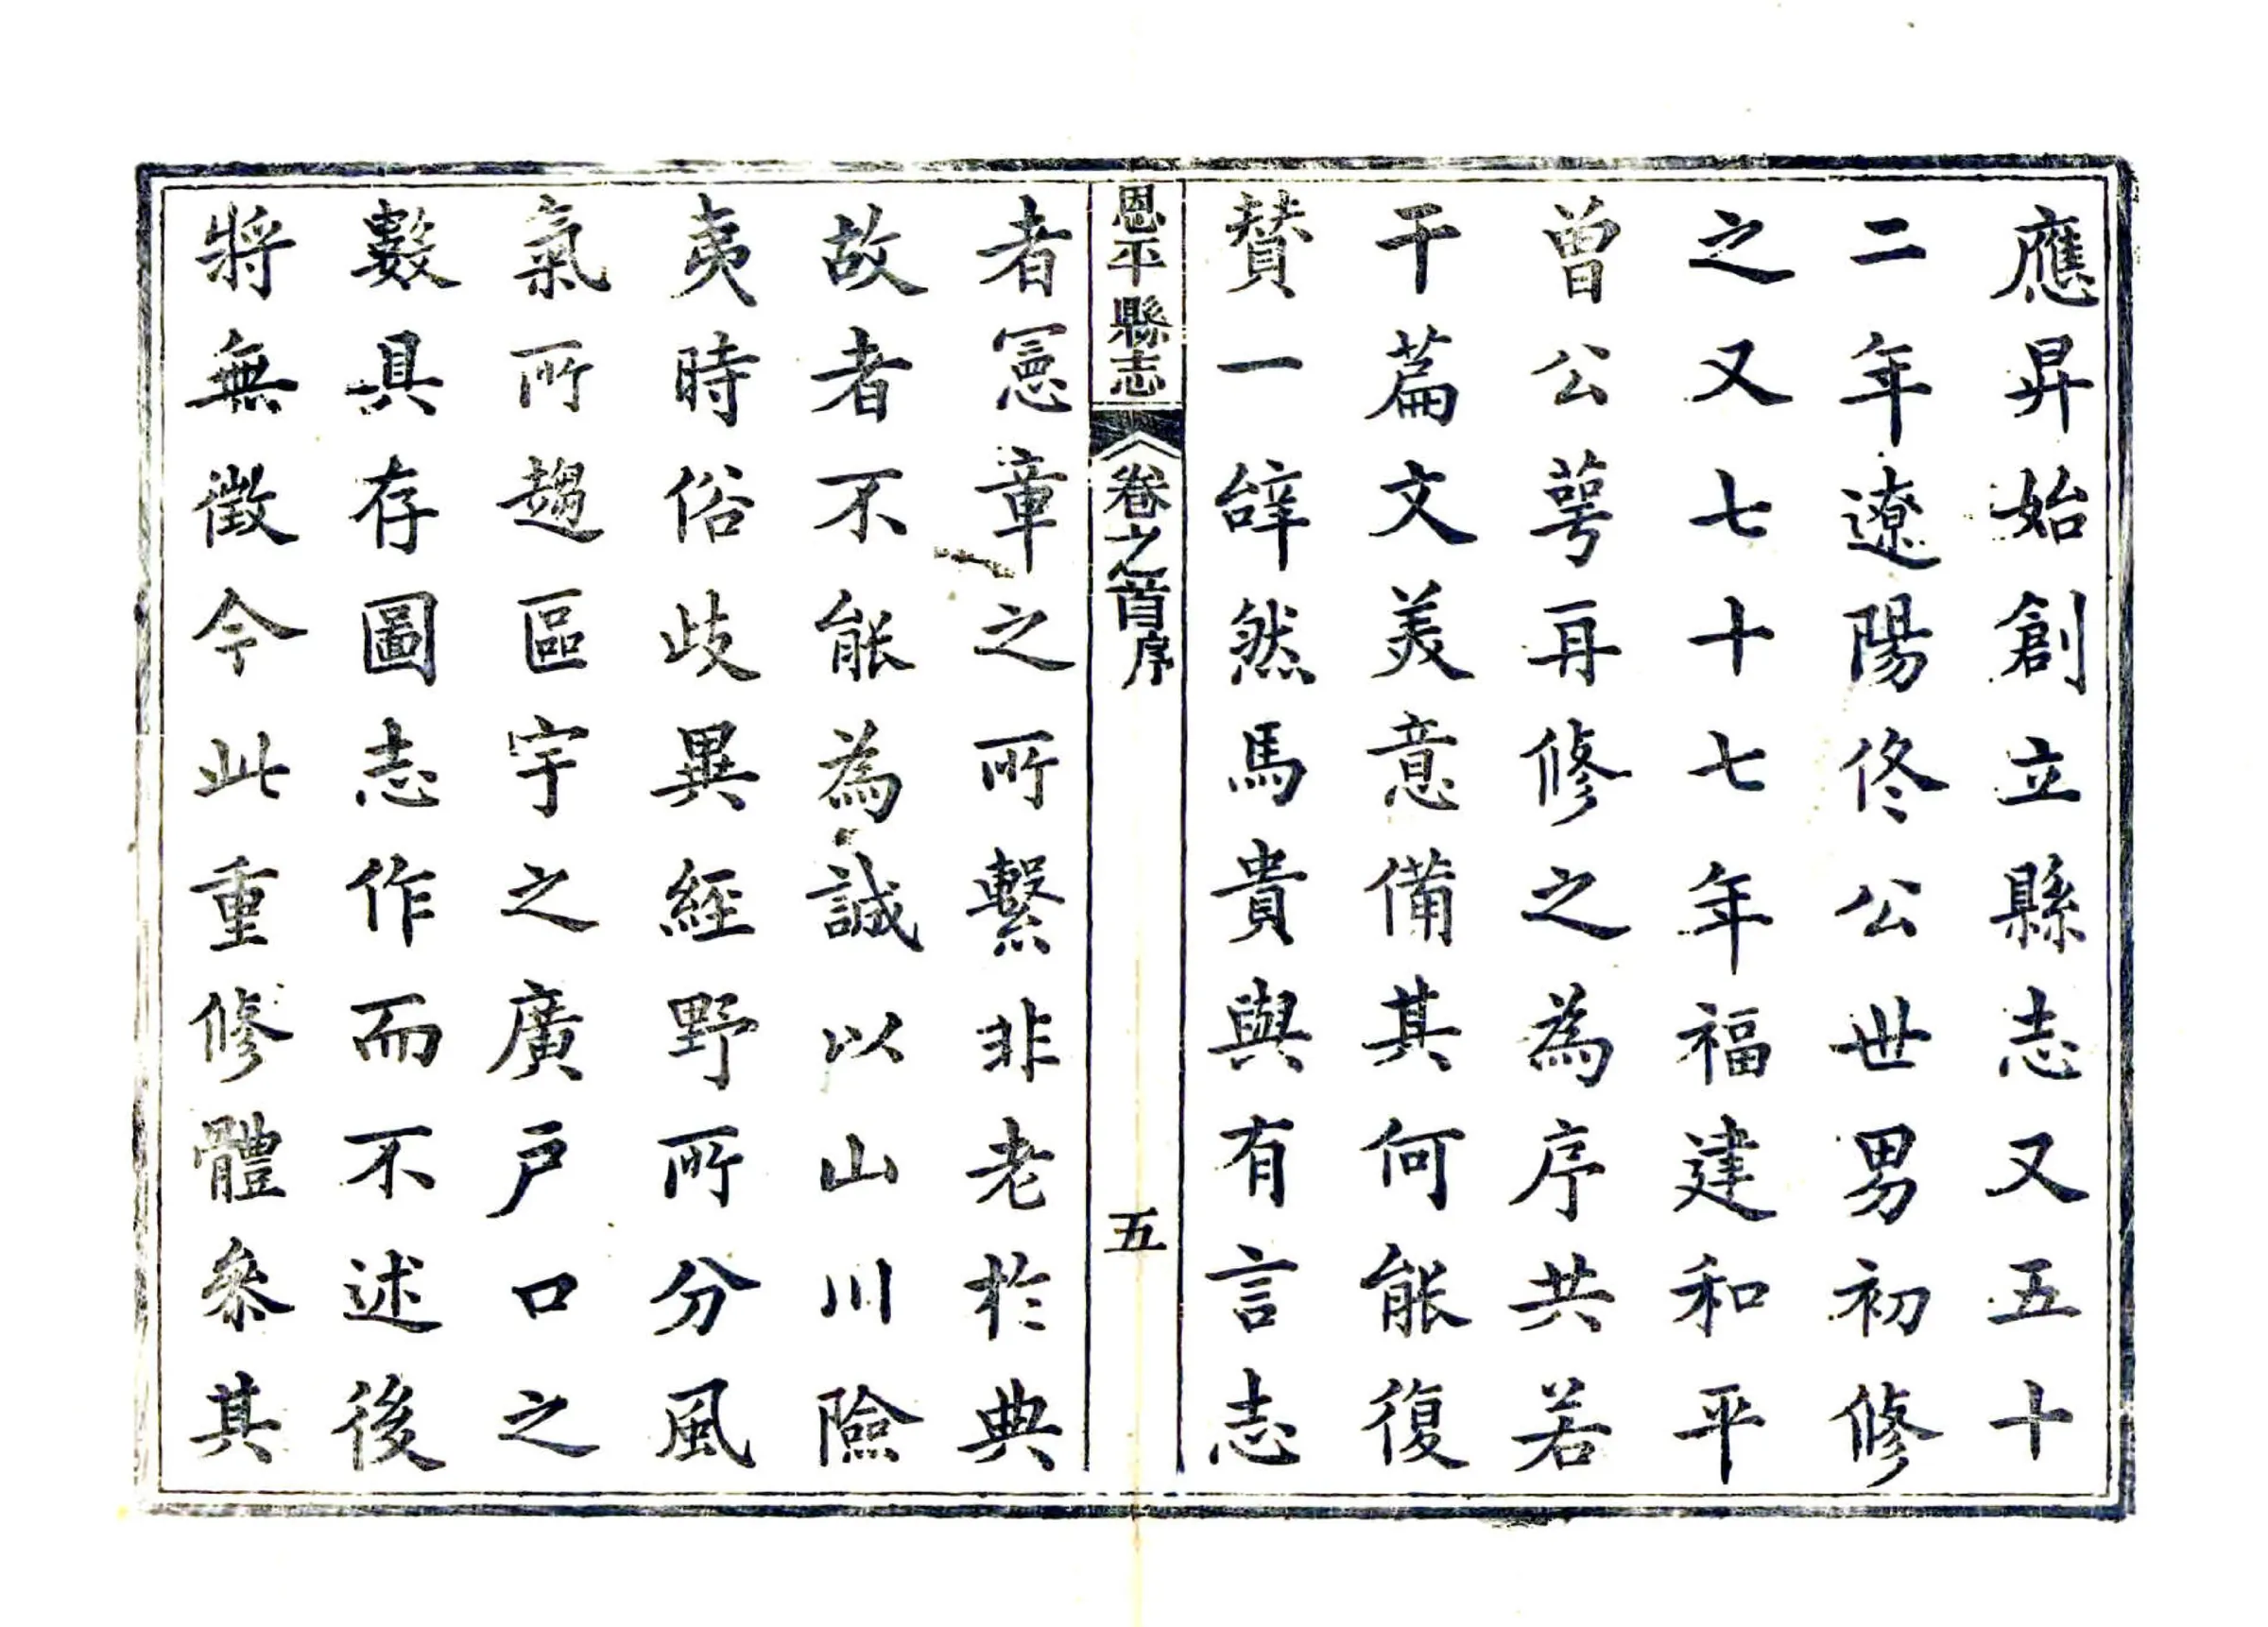 應昇始創立縣志又五十
二年遼陽佟公世男初修
之又七十七年福建和平
曾公萼再修之為序共若
干篇文美意備其何能復
贊一辝然馬貴與有言志
恩平縣志 卷之首序 五
者憲章之所繫非老於典
故者不能為誠以山川險
夷時俗歧異經野所分風
氣所趨區宇之廣戶口之
數具存圖志作而不述後
將無徵今此重修體參其